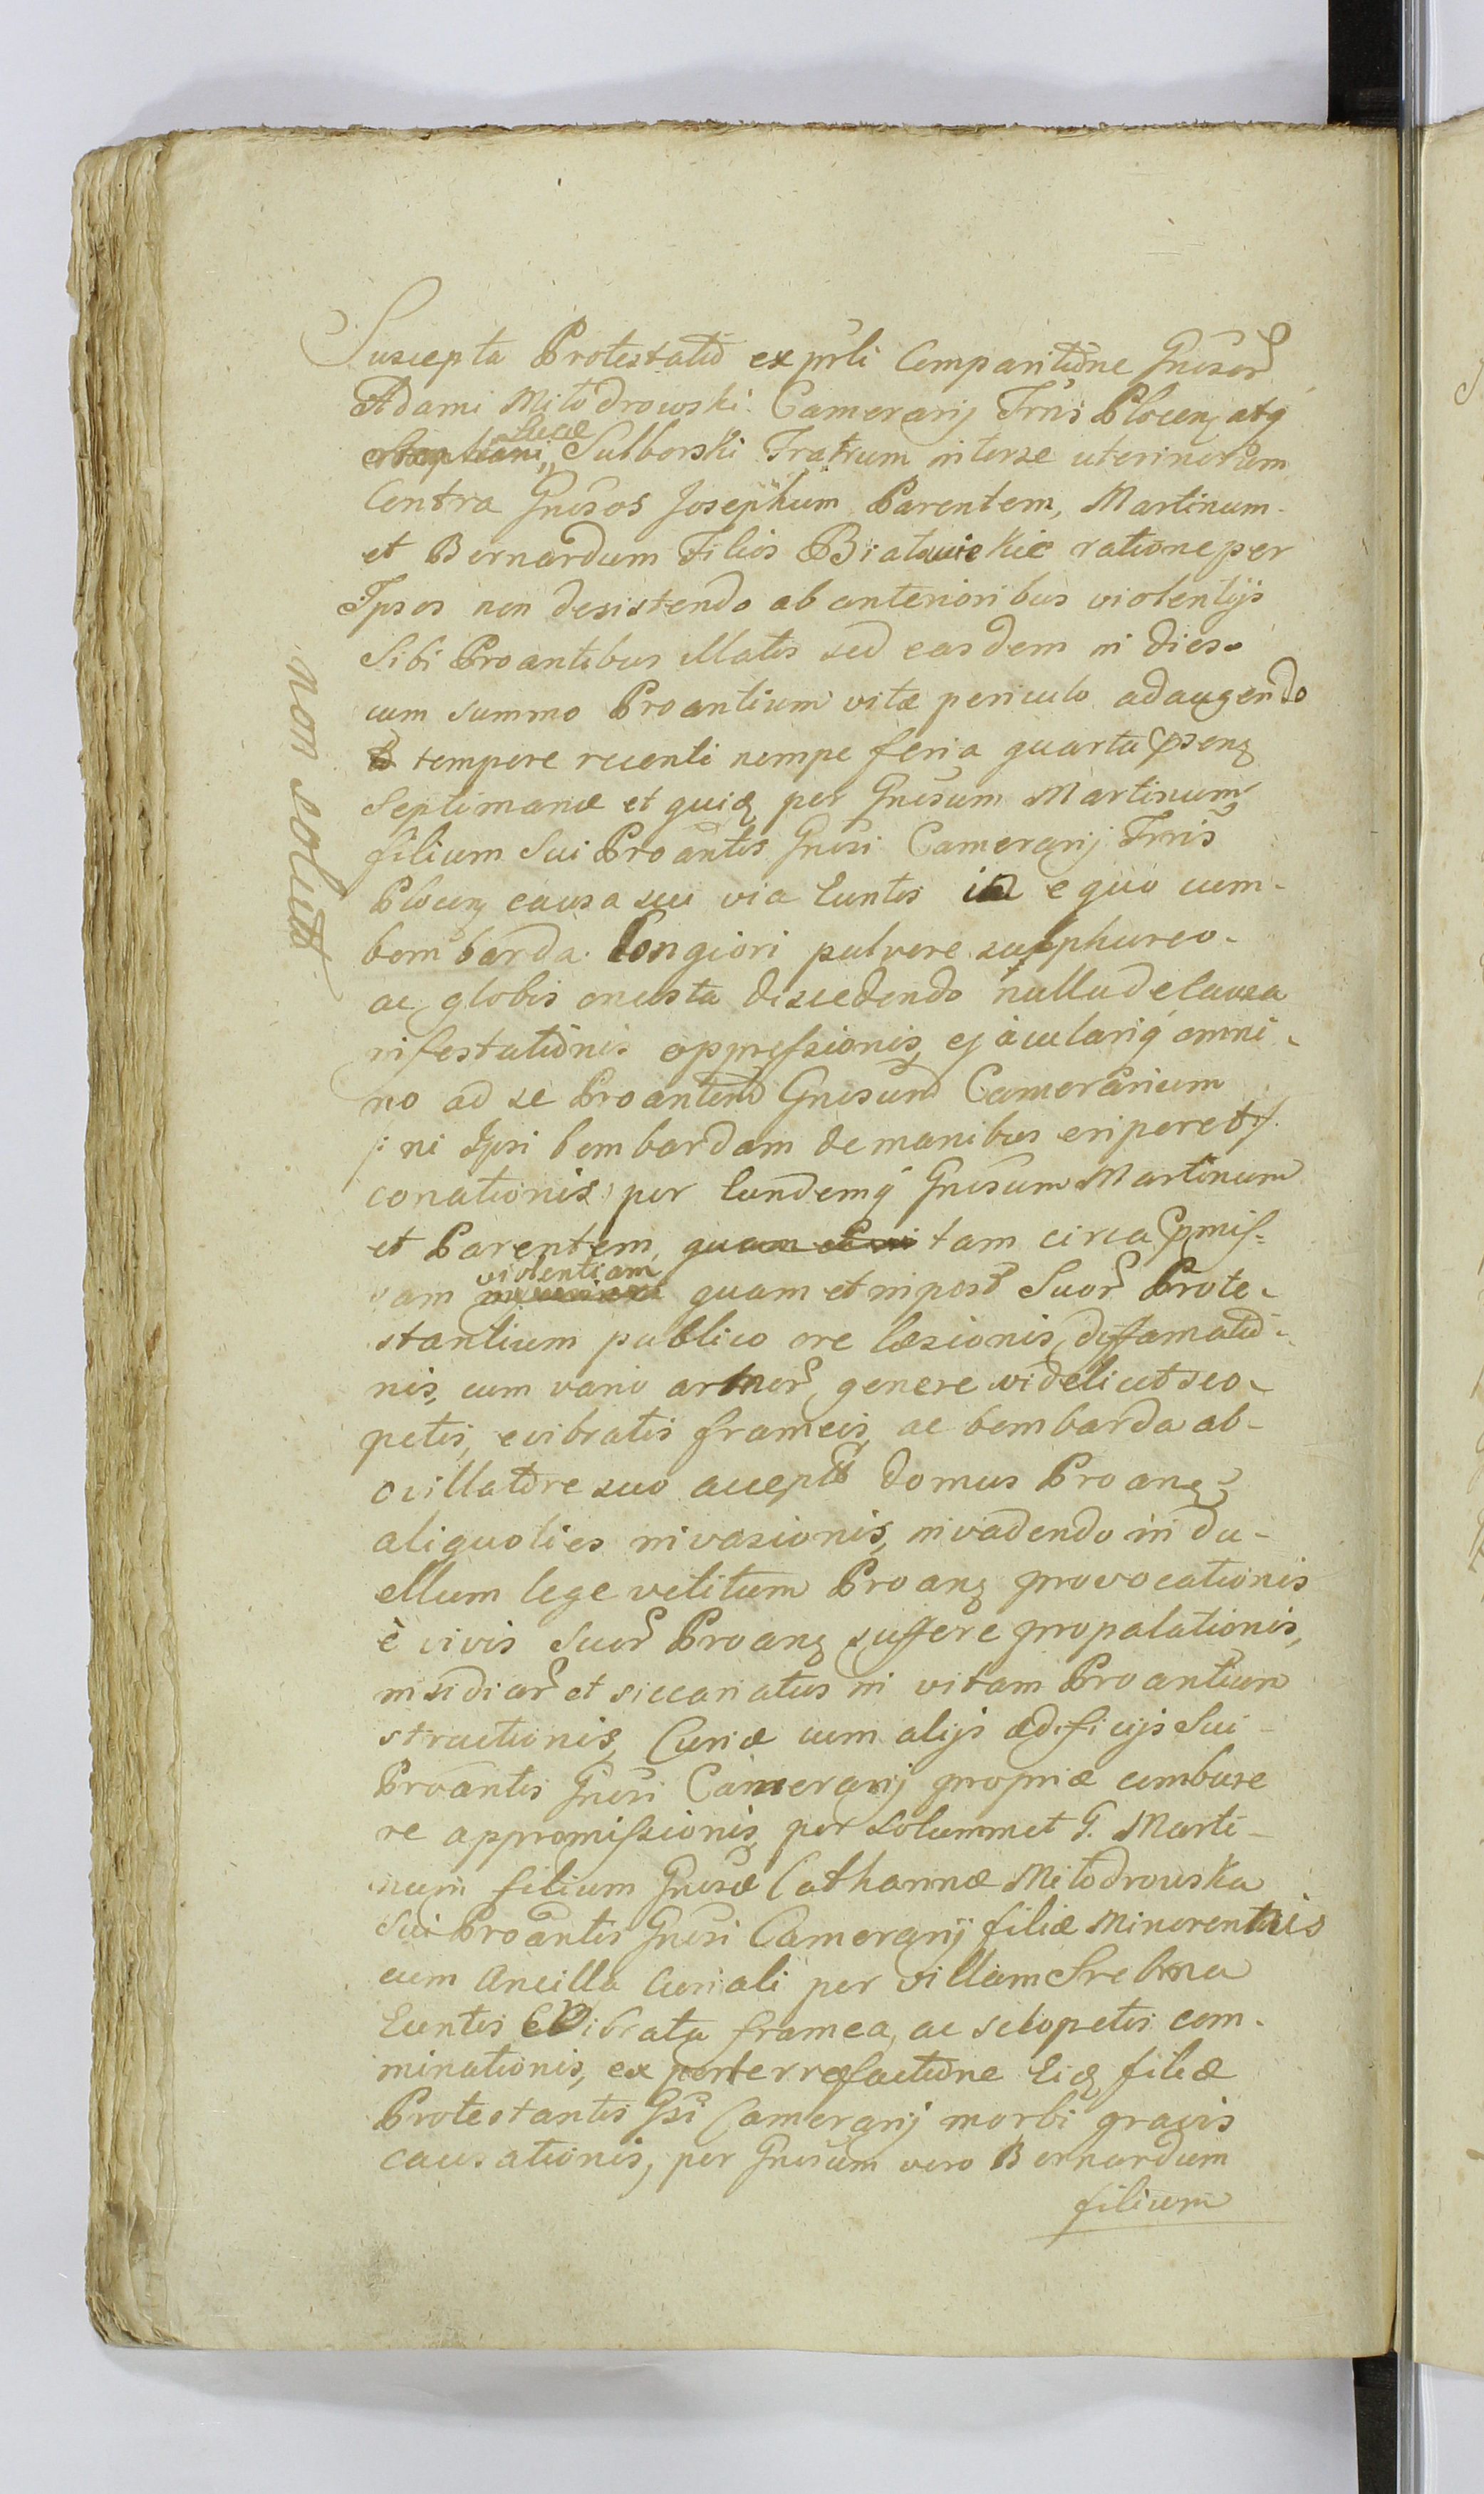 Suscepta Protestatio ex prli Comparitione Gnosor
Adami Miłodrowski Camerarij Trris Plocen atq
Lucæ Sulborski Fratrum interse uterinorum
Contra Gnosos Josephum Parentem, Martinum
et Bernardum Filios Białowickie ratione per
Ipsos non desistendo ab anterioribus violentijs
Sibi Proantibus illatis sed easdem in dies
cum summo Proantium vitæ periculo adaugendo
tempore recenti nempe feria quarta psenq
Septimanæ et quidq per Gnosum Martinum
filium Sui Proantis Gnosi Camerarij Trris
Plocen causa sui via Euntis in equo cum
bombarda longiori pulvere sulphureo
ac globis onusta discedendo nulla de causa
infestationis oppressionis, ejaculariq omni-
no ad se Proantem Gnosum Camerarium
/: ni Ipsi bombardam de manibus eriperet :/
conationis per Eundemq Gnosum Martinum
et Parentem, tam circa pmis-
sam violentiam quam et inpost Suor Prote-
stantium publico ore læsionis, diffamatio-
nis, cum vario armor genere videlicet sco-
petis, evibratis frameis, ac bombarda ab
ovillatore suo accepta domus Proanq
aliquoties invasionis, invadendo in du-
ellum lege vetitum Proanq provocationis
è vivis Suor Proanq suffere propalationis,
insidiar et siccariatus in vitam Proantium
structionis, Curiæ cum alijs ædificijs Sui
Proantis Gnosi Camerarij propriæ combure
re appromissionis, per solummet G. Marti-
num filium Gnosæ Catharinæ Miłodrowska
Sui Proantis Gnosi Camerarij filiæ Minorennis
cum Ancilla Curiali per villam Srebrna
Euntis Evibrata framea, ac sclopetis com-
minationis, ex perterrefactione Eidq filiæ
Protestantis Gsi Camerarij morbi gravis
causationis, per Gnosum vero Bernardum
filium
non solut